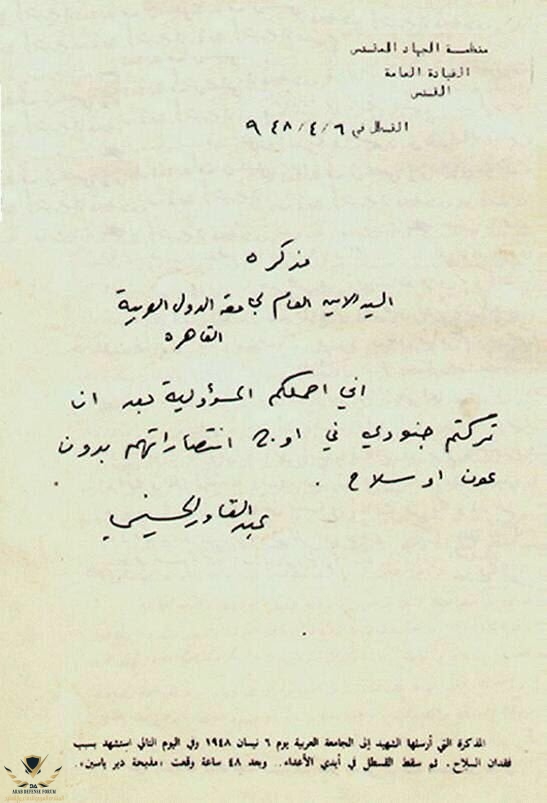 منظمة الجهاد المقدس
القيادة العامة
القدس
القسطل في ٦/٤/٩٤٨
مذكره
السيد الامين العام لجامعة الدول العربية
القاهره
اني احملكم المسؤولية بعد ان
تركتم جنودي في اوج انتصاراتهم بدون
عون او سلاح .
عبد القادر الحسيني
المذكرة التي أرسلها الشهيد إلى الجامعة العربية يوم ٦ نيسان ١٩٤٨ وفي اليوم التالي استشهد بسبب
فقدان السلاح. ثم سقط القسطل في أيدي الأعداء.. وبعد ٤٨ ساعة وقعت «مذبحة دير ياسين».
ARAB DEFENSE FORUM